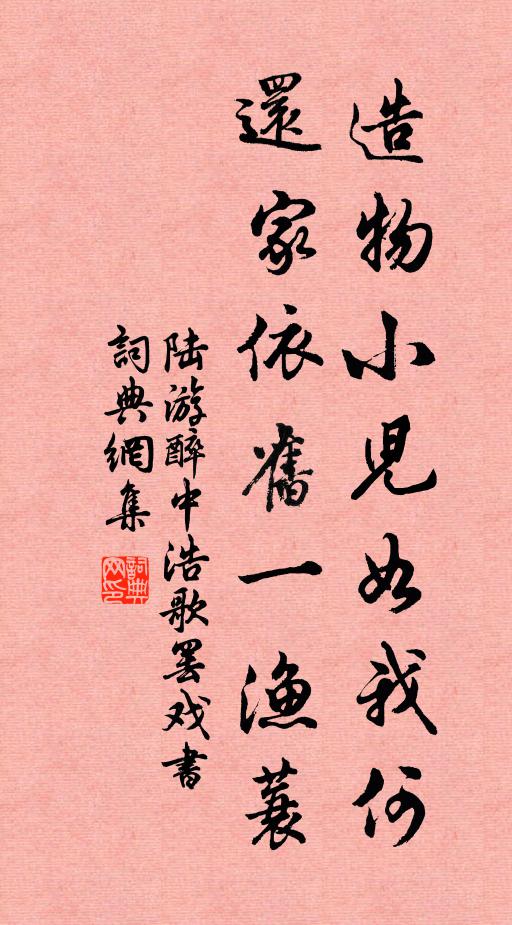 造物小児如我何
還家依舊一漁蓑
陆游醉中浩歌罢戏書
詞典網集
詞典网印